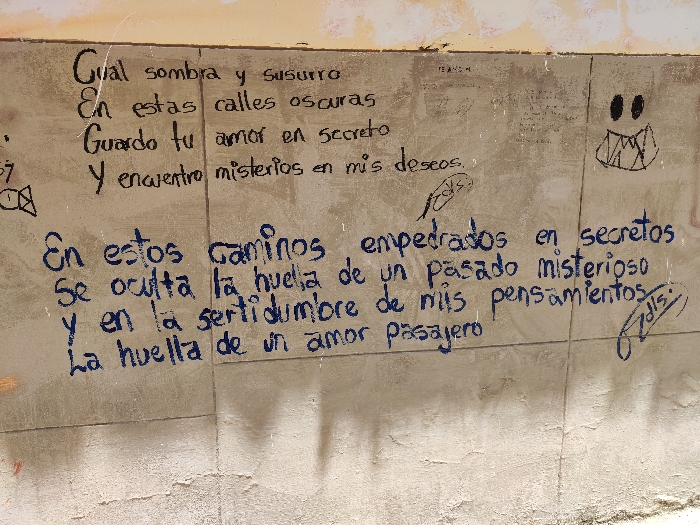 Cual sombra y susurro
En estas calles oscuras
Guardo tu amor en secreto
y encuentro misterios en mis deseos.
En estos caminos empedrados en secretos
se oculta la huella de un pasado misterioso
y en la sertidumbre de miis pensamientos
La huella de un amor pasajero